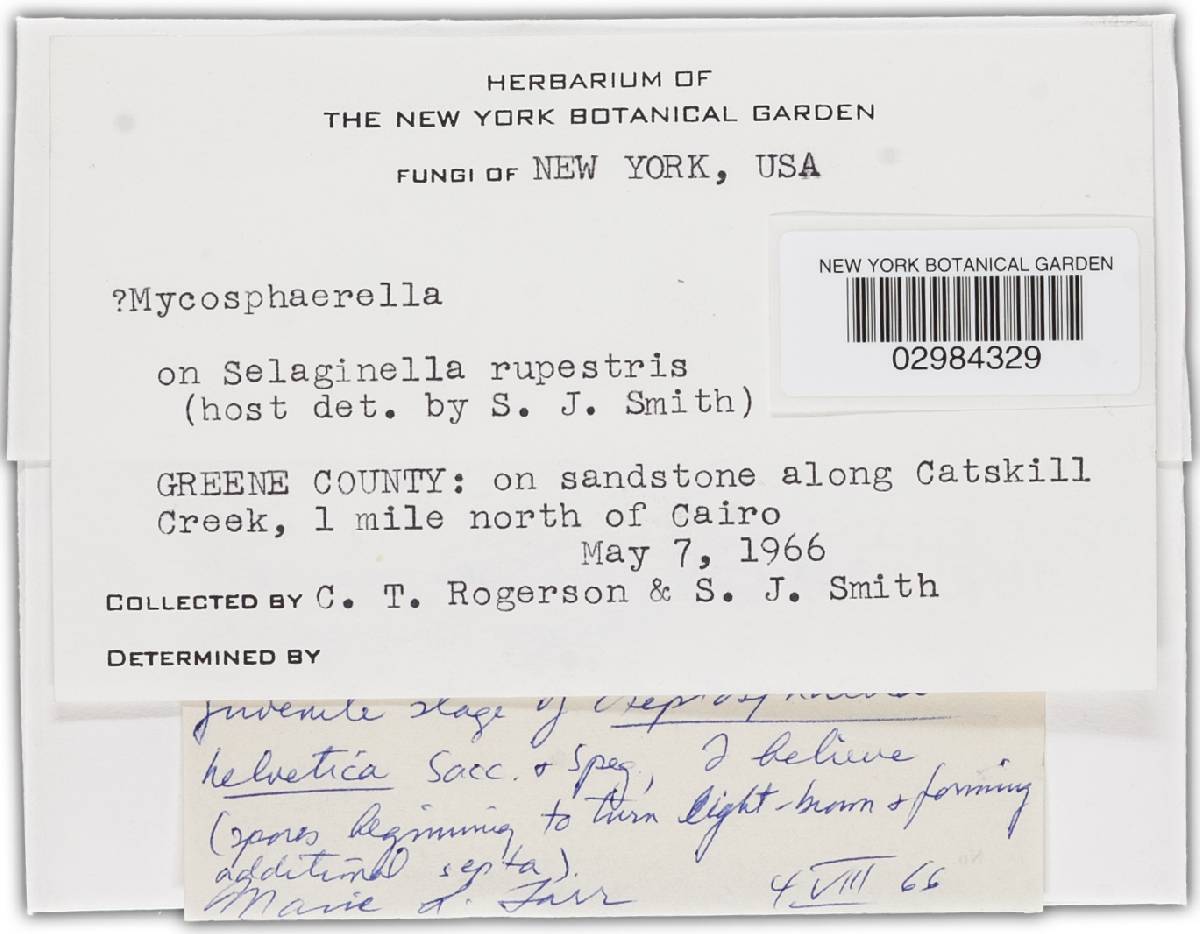 HERBARIUM OF
THE NEW YORK BOTANICAL GARDEN
FUNGI OF NEW YORK, USA
NEW YORK BOTANICAL GARDEN
02984329
?Mycosphaerella
on Selaginella rupestris
(host det. by S. J. Smith)
GREENE COUNTY: on sandstone along Catskill
Creek, 1 mile north of Cairo
May 7, 1966
COLLECTED BY C. T. Rogerson & S. J. Smith
DETERMINED BY
juvenile stage of Leptosphaeria
helvetica Sacc. & Speg, I believe
(spores beginning to turn light-brown & forming
additional septa).
Marie L. Farr 4 VIII 66